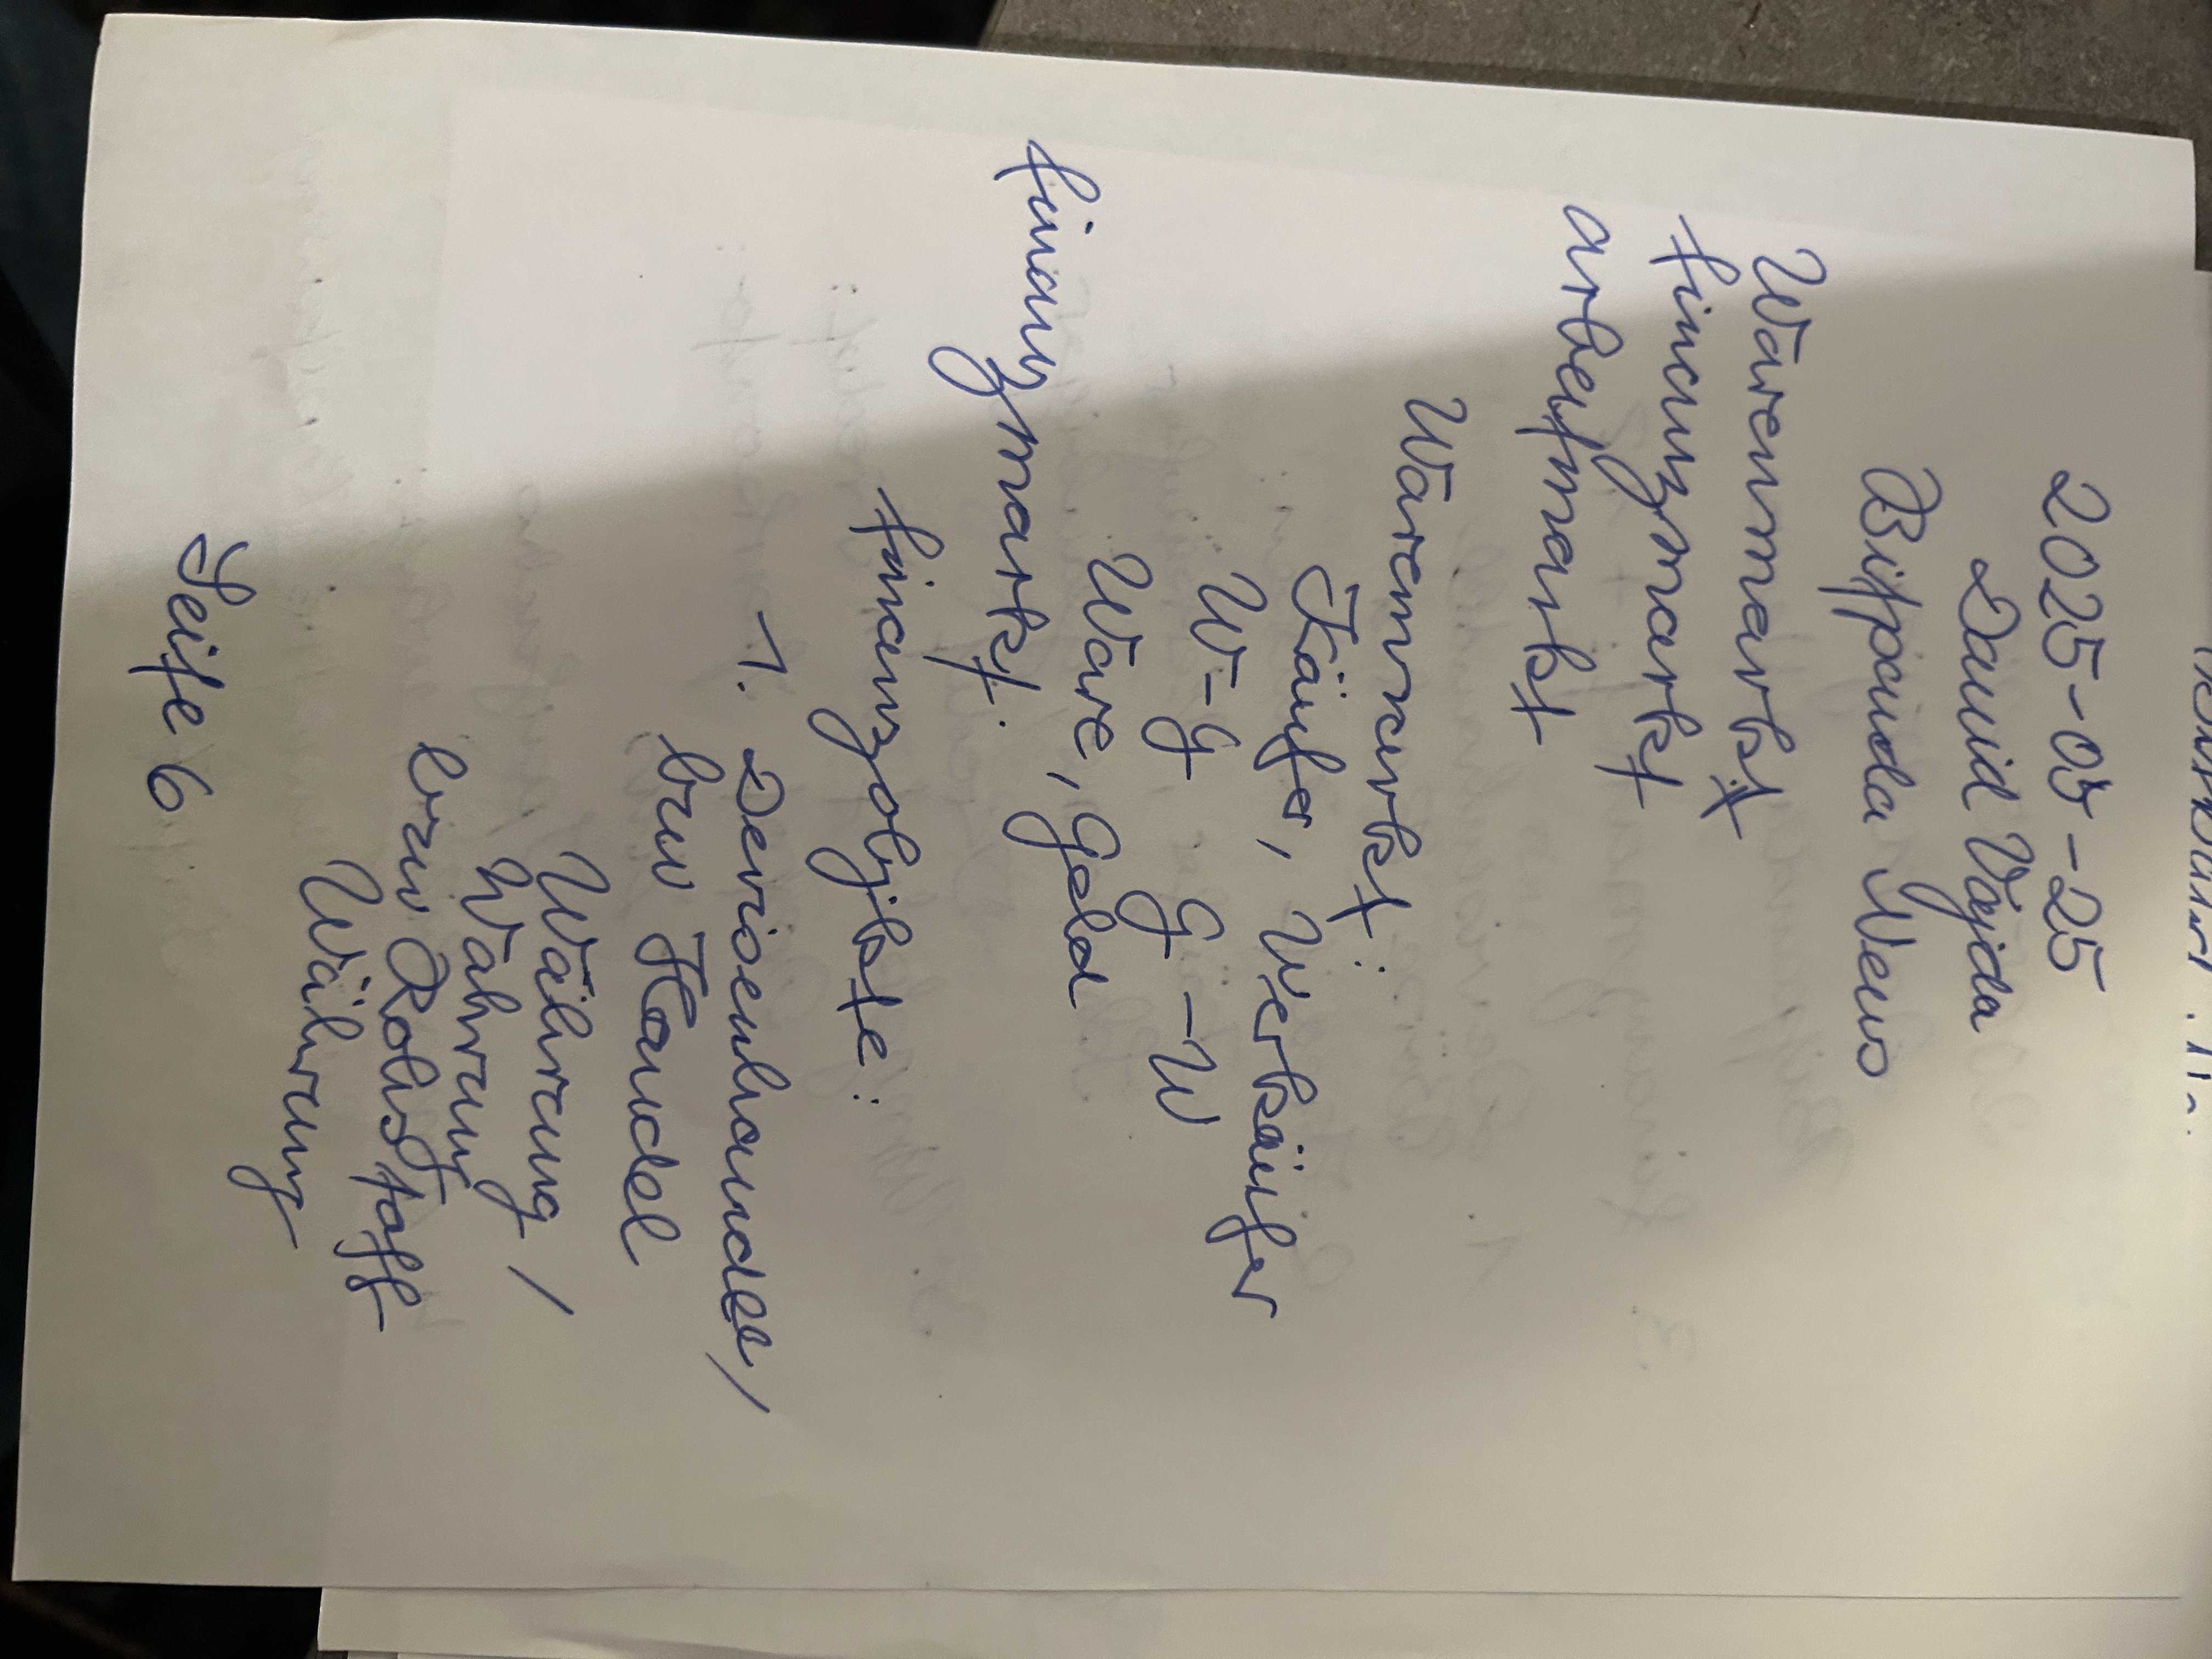 2025-05-25
David Vajda
Bifpanda News
Warenmarkt
finanzmarkt
arbeitmarkt
Warenmarkt:
Käufer, Verkäufer
W-G G-W
Ware, Geld
finanzmarkt:
finanzobjekte:
1. Devisenhandel,
bzw Handel
Währung /
Währung
bzw Rohstoff
Währung
Seite 6